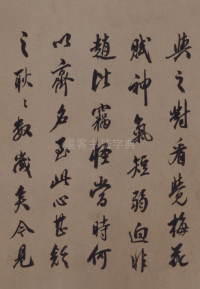 與之對看覺梅花
賦神氣短弱迥非
趙比竊恠當時何
以齊名至此心甚疑
之耿々數歲矣今見